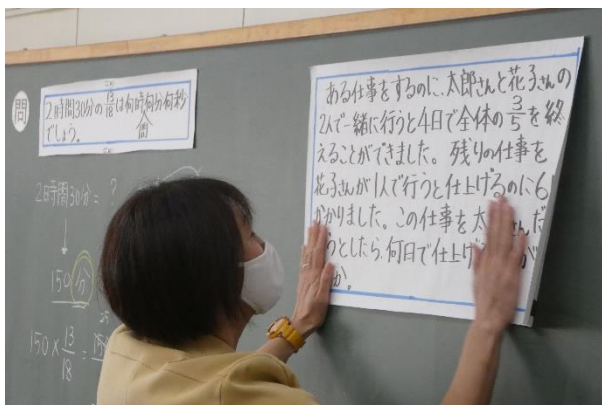 問
2時間30分の13/18は何時何分何秒
間
でしょう。
2時間30分=?
↓
150分
150×13/18=
ある仕事をするのに、太郎さんと花子さんの
2人で一緒に行うと4日で全体の3/5を終
えることができました。残りの仕事を
花子さんが1人で行うと仕上げるのに6
かかりました。この仕事を太 さんだ
うとしたら、何日で仕上げ が
か。